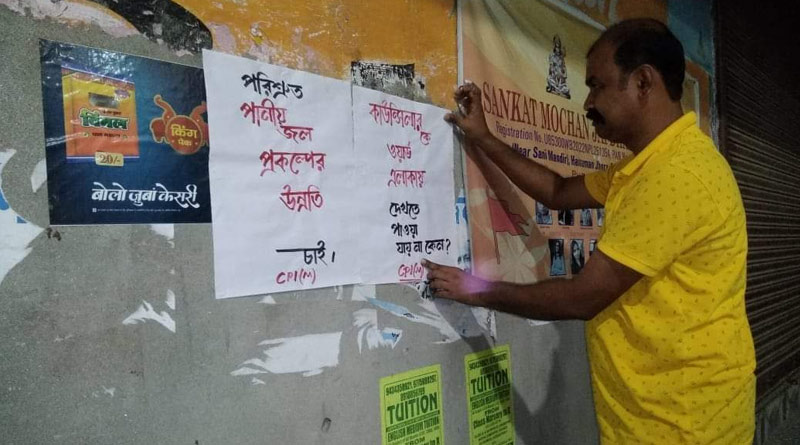 20/-
किंग
पैक
बोलो ज़ुबां केसरी
পরিশ্রুত
পানীয়
জল
প্রকল্পের
উন্নতি
চাই।
CPI(M)
কাউন্সিলার
কে
ওয়ার্ড
এলাকায়
দেখতে
পাওয়া
যায় না কেন?
CPI(M)
SANKAT MOCHAN
Registration No.
(Near Sani Mandir, Hanuman
TUITION
ENGLISH MEDIUM TUITION
TUITION